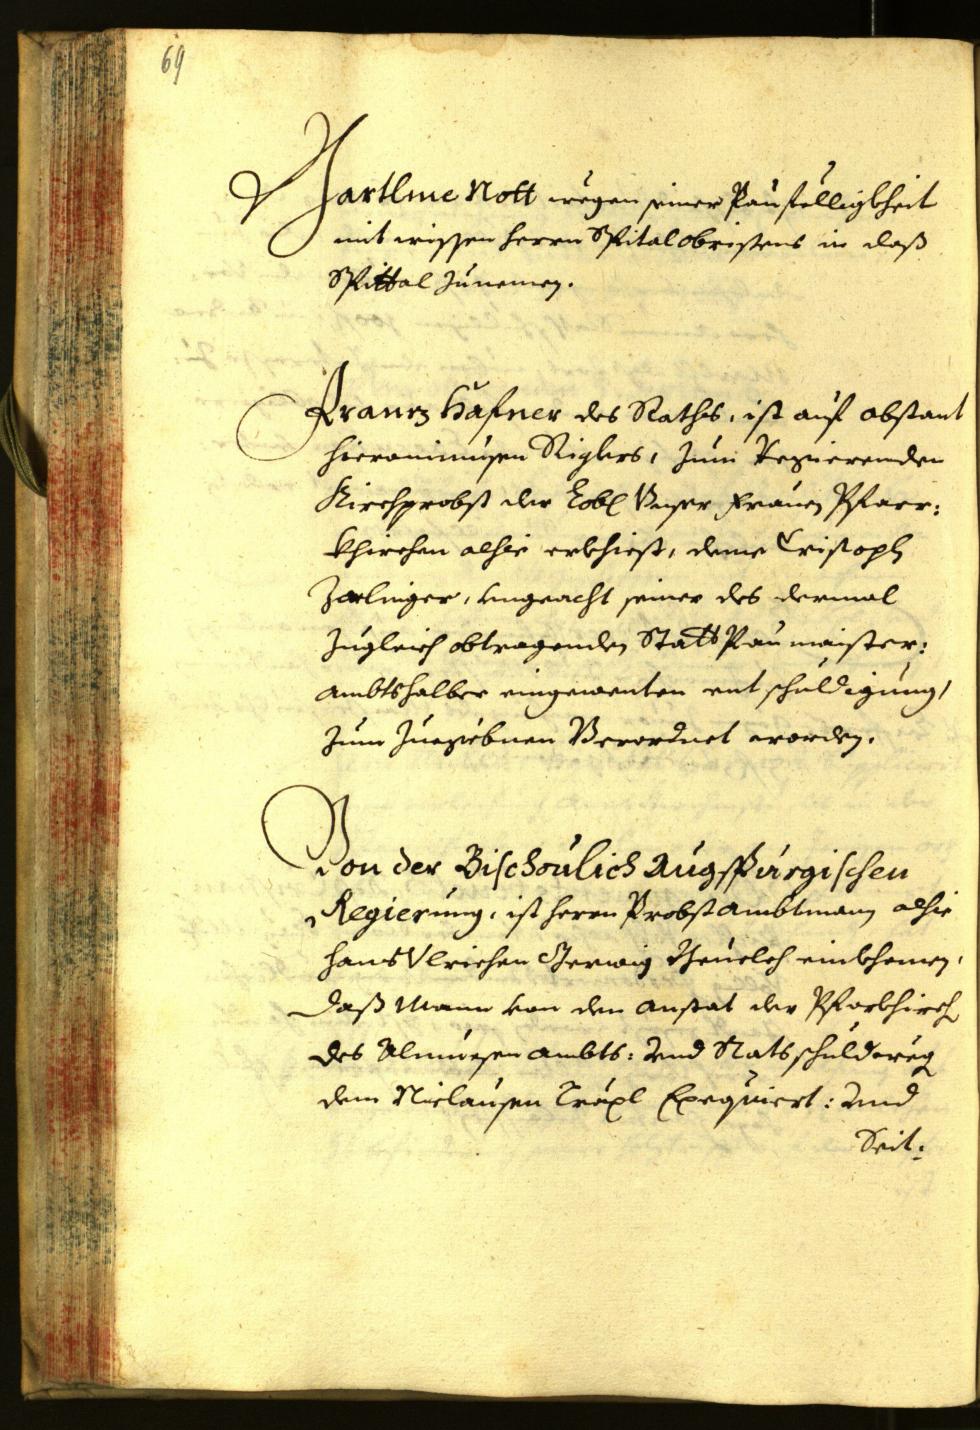 69
Bartlme Nott wegen seiner Paufelligkheit
mit wissen herrn Spitalobristens in daß
Spittal Zunemen.
Franz Hafner des Rathß, ist auf abstant
Hieronimusen Riglers, zum Regierenden
Kirchprobst der Lobl Unser Frauen Pfarr:
khirchen alhie erkhiest, deme Cristoph
Zorlinger, ungeacht seiner des dermal
Zugleich obtragenden StattPaumaister:
ambtshalber eingewenten entschuldigung,
zum Zuegebnen Verordnet worden.
Von der Bischoulich Augspurgischen
Regierung, ist herrn Probst ambtmann alhie
Hanß Ulrichen beuelch einkhomen,
daß Mann von den anstat der Pfarkhirch
des Almuesen ambts: Und Rats schuld weg
dem Niclausen Exequiert: Und
Seit: